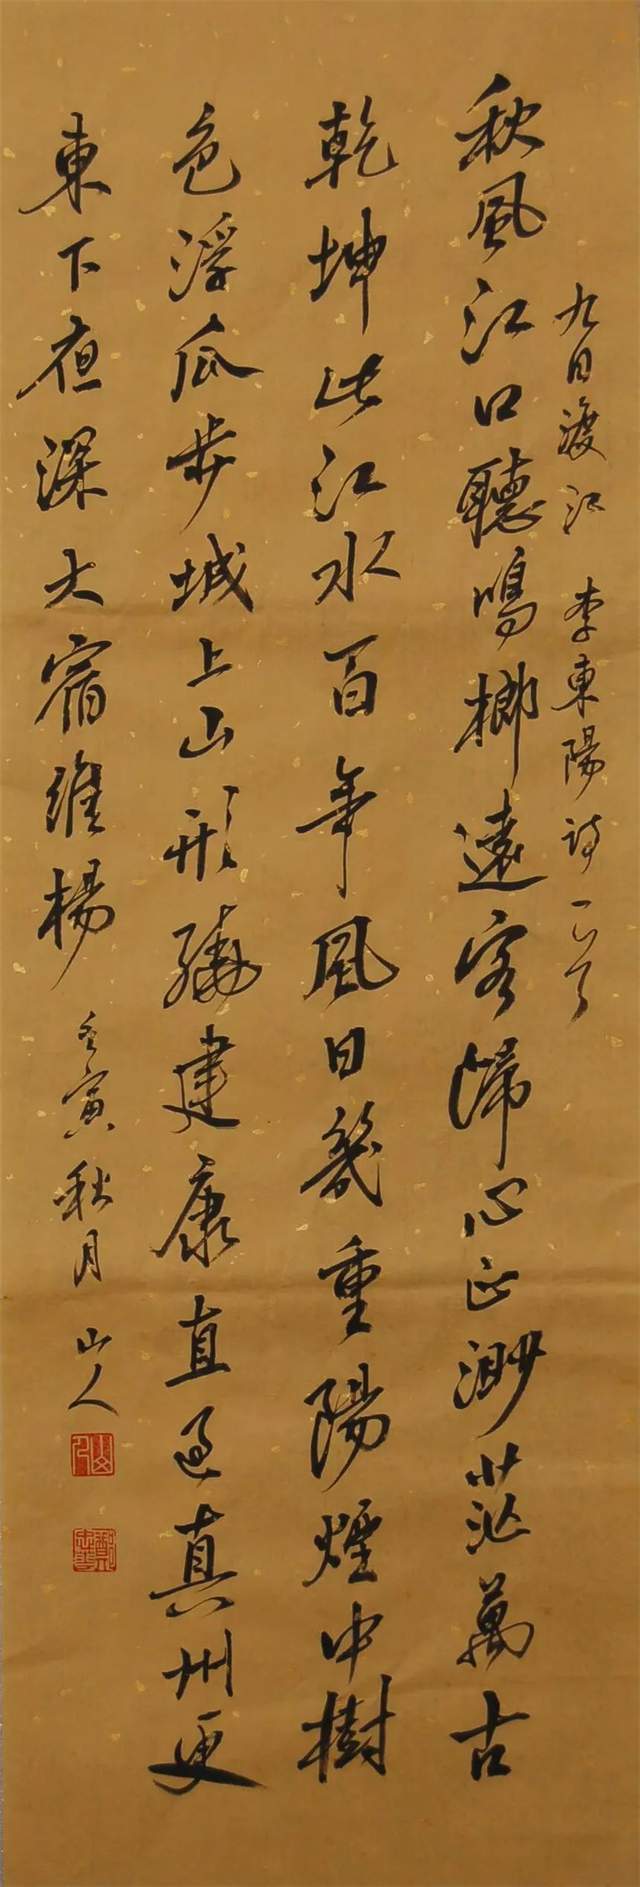 九日渡江 李東陽詩一首
秋風江口聽鳴榔遠客歸心正渺茫萬古
乾坤此江水百年風日幾重陽煙中樹
色浮瓜步城上山形繞建康直過真州更
東下夜深大宿維楊 壬寅秋月 山人
山人